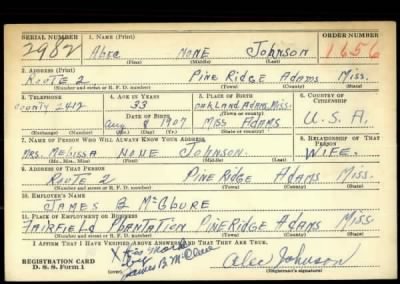 SERIAL NUMBER 1. NAME (Print) ORDER NUMBER
2982 Alec NONE Johnson 1656
(First) (Middle) (Last)
2. ADDRESS (Print)
ROUTE 2 PINE RIDGE ADAMS MISS.
(Number and street or R. F. D. number) (Town) (County) (State)
3. TELEPHONE 4. AGE IN YEARS 5. PLACE OF BIRTH 6. COUNTRY OF CITIZENSHIP
County 2412 33 OAKLAND, ADAMS, MISS.
DATE OF BIRTH (Town or county)
Aug 8 1907 MISS ADAMS U.S.A.
(Exchange) (Number) (Mo.) (Day) (Yr.) (State or country)
7. NAME OF PERSON WHO WILL ALWAYS KNOW YOUR ADDRESS 8. RELATIONSHIP OF THAT PERSON
MRS. MELISSA NONE JOHNSON WIFE.
(Mr., Mrs., Miss) (First) (Middle) (Last)
9. ADDRESS OF THAT PERSON
ROUTE 2 PINE RIDGE ADAMS MISS.
(Number and street or R. F. D. number) (Town) (County) (State)
10. EMPLOYER'S NAME
JAMES B McClure
11. PLACE OF EMPLOYMENT OR BUSINESS
FAIRFIELD PLANTATION PINE RIDGE ADAMS MISS
(Number and street or R. F. D. number) (Town) (County) (State)
I AFFIRM THAT I HAVE VERIFIED ABOVE ANSWERS AND THAT THEY ARE TRUE.
REGISTRATION CARD X his mark
D. S. S. Form 1 by James B McClure Alec Johnson
(Registrant's signature)